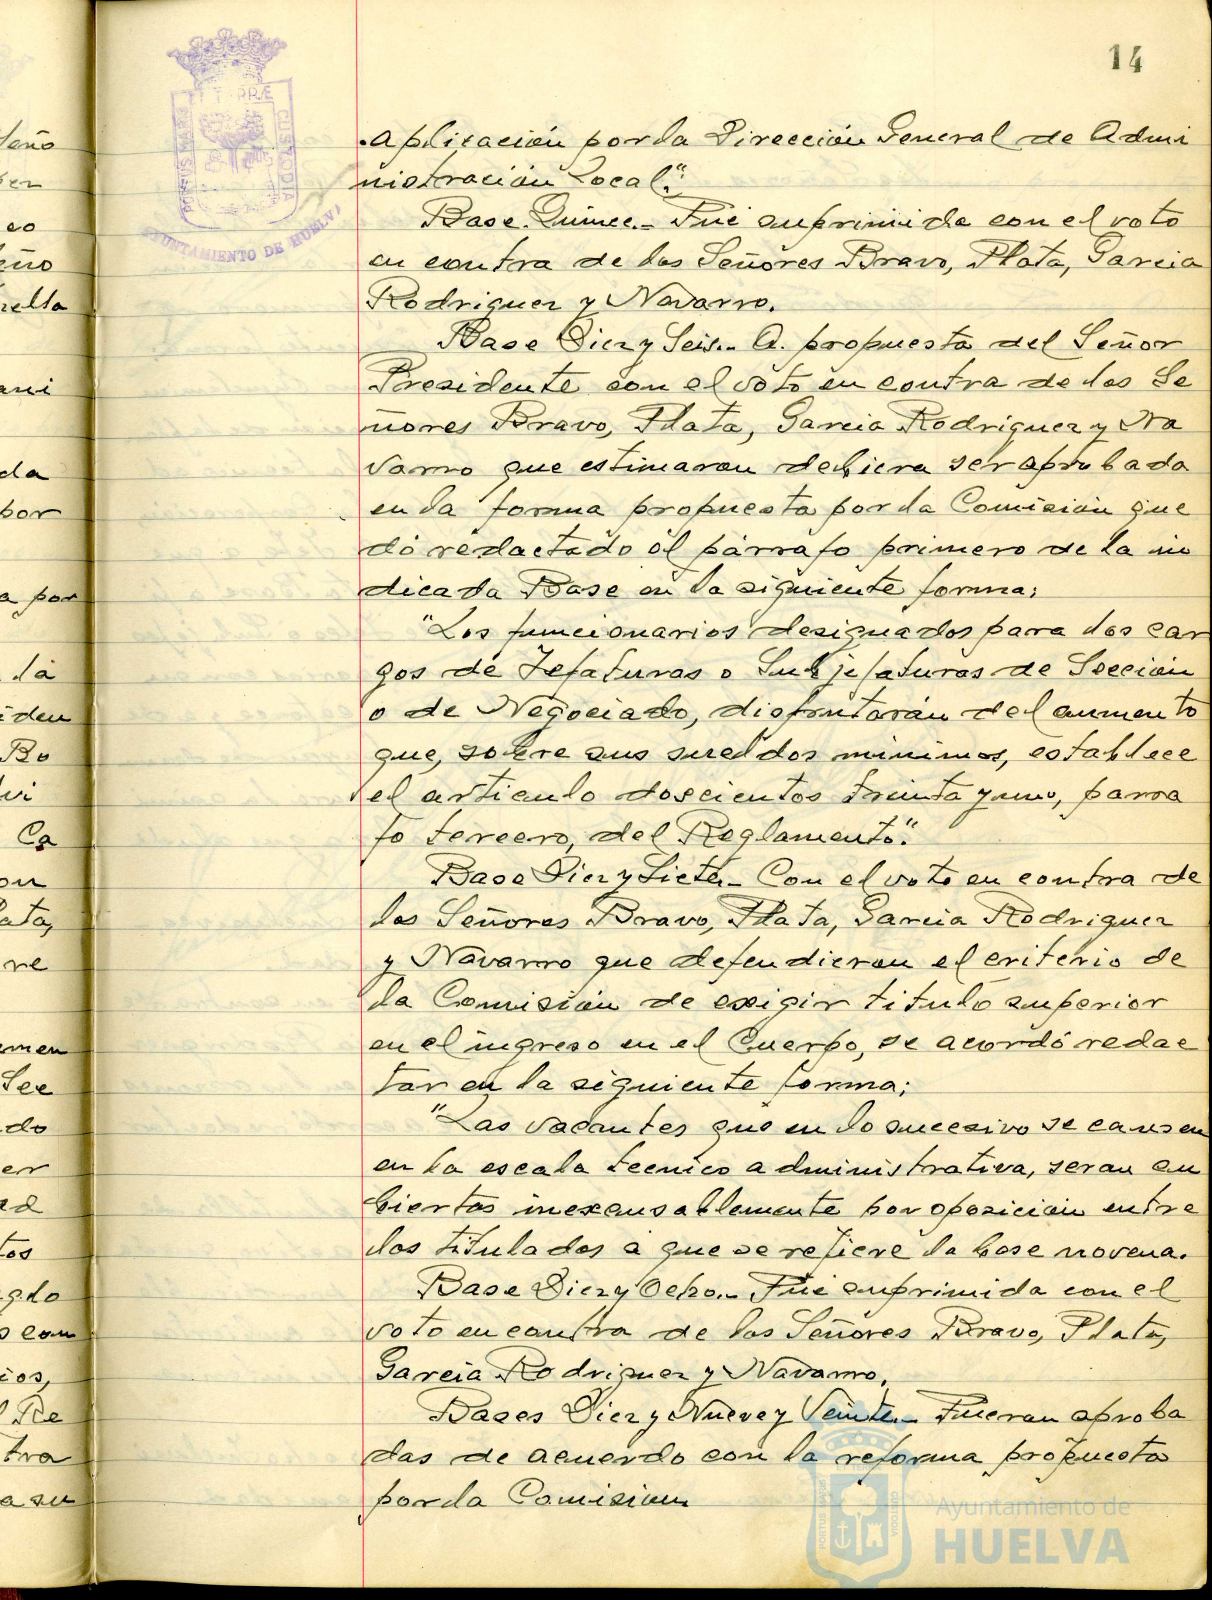 14
aplicación por la Dirección General de Admi
nistración Local."
Base Quince.- Fué suprimida con el voto
en contra de los Señores Bravo, Plata, Garcia
Rodriguez y Navarro.
Base Diez y Seis.- A propuesta del Señor
Presidente con el voto en contra de los Se
ñores Bravo, Plata, Garcia Rodriguez y Na
varro que estimaron debiera ser aprobada
en la forma propuesta por la Comisión que
dó redactado el párrafo primero de la in
dicada Base en la siguiente forma:
"Los funcionarios designados para los car
gos de Jefaturas o Subjefaturas de Sección
o de Negociado, disfrutarán del aumento
que, sobre sus sueldos minimos, establece
el articulo doscientos treinta y uno, parra
fo tercero, del Reglamento".
Base Diez y Siete.- Con el voto en contra de
los Señores Bravo, Plata, Garcia Rodriguez
y Navarro que defendieron el criterio de
la Comisión de exigir titulo superior
en el ingreso en el Cuerpo, se acordó redac
tar en la siguiente forma;
"Las vacantes que en lo sucesivo se causen
en la escala tecnico administrativa, seran cu
biertas inexcusablemente por oposición entre
los titulados a que se refiere la base novena.
Base Diez y Ocho.- Fué suprimida con el
voto en contra de los Señores Bravo, Plata,
Garcia Rodriguez y Navarro.
Bases Diez y Nueve y Veinte.- Fueron aproba
das de acuerdo con la reforma propuesta
por la Comision
AYUNTAMIENTO DE HUELVA
PORTUS MARIS
ET TERRÆ
CUSTODIA
Ayuntamiento de
HUELVA
eño
eo
eño
rella
ani
da
por
a por
la
iden
Bo
vi
Ca
on
lata,
re
amen
Sec
do
er
ad
tos
gdo
s con
ios,
l Re
tra
a su